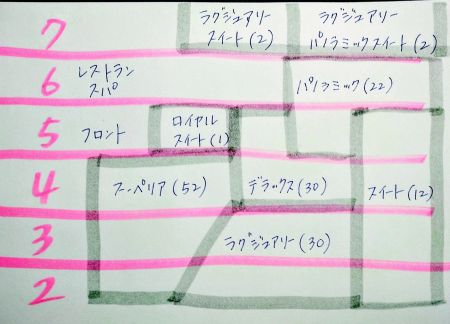 7
ラグジュアリー
スイート(2)
ラグジュアリー
パノラミックスイート(2)
6
レストラン
スパ
パノラミック(22)
5
フロント
ロイヤル
スイート(1)
4
スーペリア(52)
デラックス(30)
スイート(12)
3
ラグジュアリー(30)
2